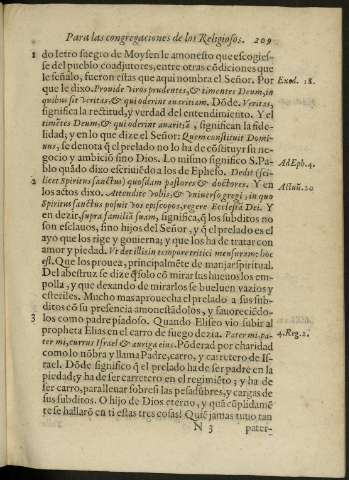 Para las congregaciones de los Religiosos. 209
1 do Ietro suegro de Moysen le amonesto que escogies-
se del pueblo coadjutores, entre otras cõdiciones que
le señalo, fueron estas que aqui nombra el Señor. Por
que le dixo. Prouide viros prudentes, & timentes Deum, in
quibus sit veritas, & qui oderint auaritiam. Dõde. Veritas,
significa la rectitud, y verdad del entendimiento. Y el
timētes Deum, & qui oderint auaritiā, significan la fide-
lidad; y en lo que dize el Señor: Quem constituit Domi-
nus, se denota q̃ el prelado no lo ha de cõstituyr su ne-
gocio y ambiciõ sino Dios. Lo mismo significo S. Pa-
blo quãdo dixo escriuiēdo a los de Epheso. Dedit (sci-
2 licet Spiritus sanctus) quosdam pastores & doctores. Y en
los actos dixo. Attendite vobis, & vniuerso gregi, in quo
Spiritus sanctus posuit vos episcopos, regere Ecclesiã Dei. Y
en dezir, supra familiã suam, significa, q̃ los subditos no
son esclauos, sino hijos del Señor, y q̃ el prelado es el
ayo que los rige y gouierna; y que los ha de tratar con
amor y piedad. Vt det illis in tempore tritici mensuram: hoc
est. Que los prouea, principalmēte de manjar spiritual.
Del abestruz se dize q̃ solo cõ mirar sus hueuos los em-
polla, y que dexando de mirarlos se bueluen vazios y
esteriles. Mucho mas aprouecha el prelado a sus sub-
ditos cõ su presencia amonestãdolos, y fauoreciēdo-
3 los como padre piadoso. Quando Eliseo vio subir al
propheta Elias en el carro de fuego dezia. Pater mi, pa-
ter mi, currus Israel & auriga eius. Põderad por charidad
como lo nõbra y llama Padre, carro, y carretero de Is-
rael. Dõde significo q̃ el prelado ha de ser padre en la
piedad; y ha de ser carretero en el regimiēto; y ha de
ser carro, para lleuar sobre si las pesadũbres, y cargas de
sus subditos. O hijo de Dios eterno, y quã cũplidamē
te se hallarõ en ti estas tres cosas! Quiē jamas tuuo tan
N 3 pater-
Exod. 18.
Ad Eph. 4.
Actuũ. 20
4. Reg. 2.